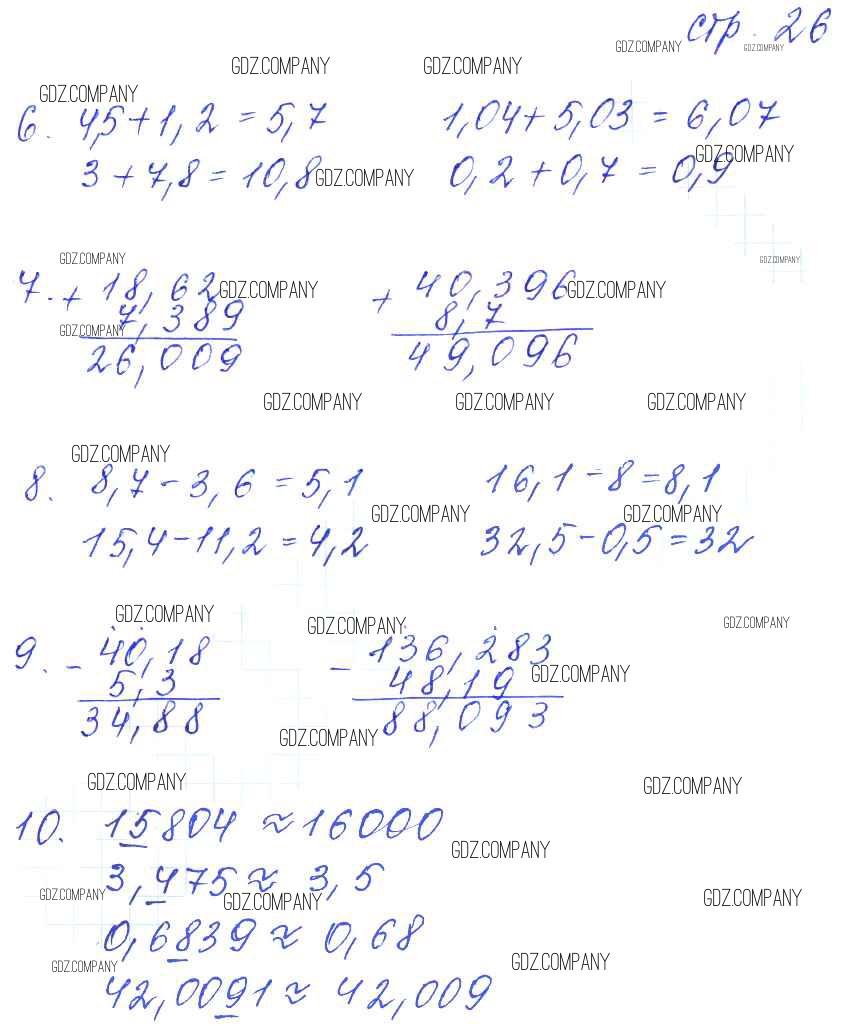 стр. 26
GDZ.COMPANY GDZ.COMPANY
GDZ.COMPANY GDZ.COMPANY
GDZ.COMPANY
6. 4,5 + 1,2 = 5,7 1,04 + 5,03 = 6,07
GDZ.COMPANY
3 + 7,8 = 10,8 GDZ.COMPANY 0,2 + 0,7 = 0,9
GDZ.COMPANY GDZ.COMPANY
7. + 18,62 GDZ.COMPANY + 40,396 GDZ.COMPANY
7,389 8,7
GDZ.COMPANY
26,009 49,096
GDZ.COMPANY GDZ.COMPANY GDZ.COMPANY
GDZ.COMPANY
8. 8,7 - 3,6 = 5,1 16,1 - 8 = 8,1
GDZ.COMPANY GDZ.COMPANY
15,4 - 11,2 = 4,2 32,5 - 0,5 = 32
GDZ.COMPANY GDZ.COMPANY GDZ.COMPANY
9. - 40,18 - 136,283
5,3 48,19 GDZ.COMPANY
34,88 88,093
GDZ.COMPANY
GDZ.COMPANY GDZ.COMPANY
10. 15804 ≈ 16000
GDZ.COMPANY
3,475 ≈ 3,5
GDZ.COMPANY GDZ.COMPANY GDZ.COMPANY
0,6839 ≈ 0,68
GDZ.COMPANY GDZ.COMPANY
42,0091 ≈ 42,009